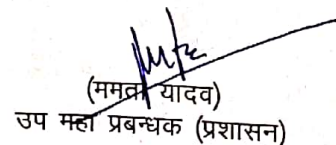 (ममता यादव)
उप महा प्रबन्धक (प्रशासन)